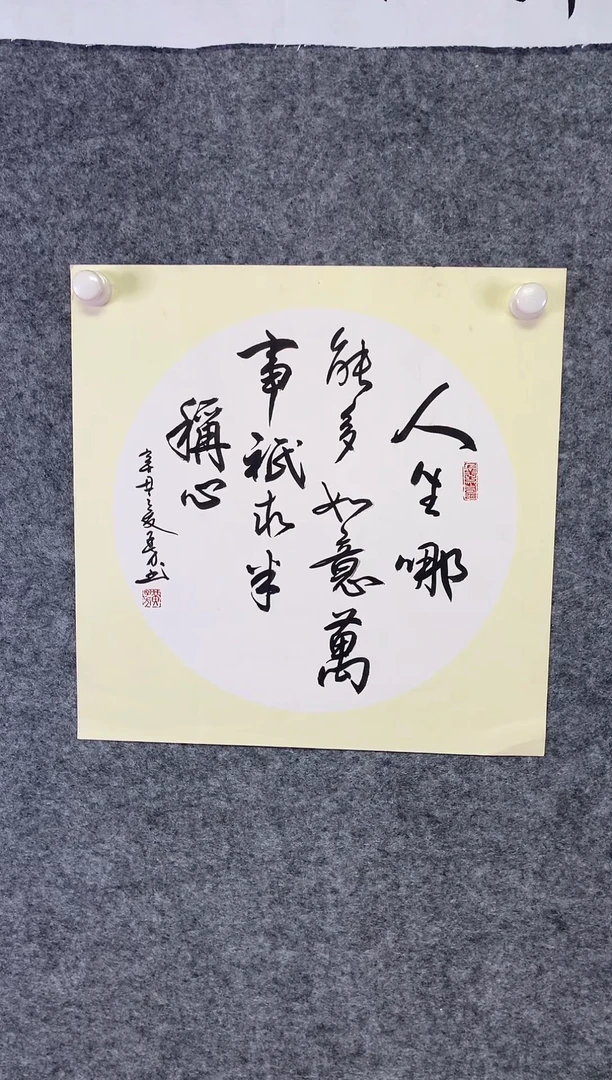 人生哪
能多如意萬
事祇求半
稱心
辛丑之夏
书